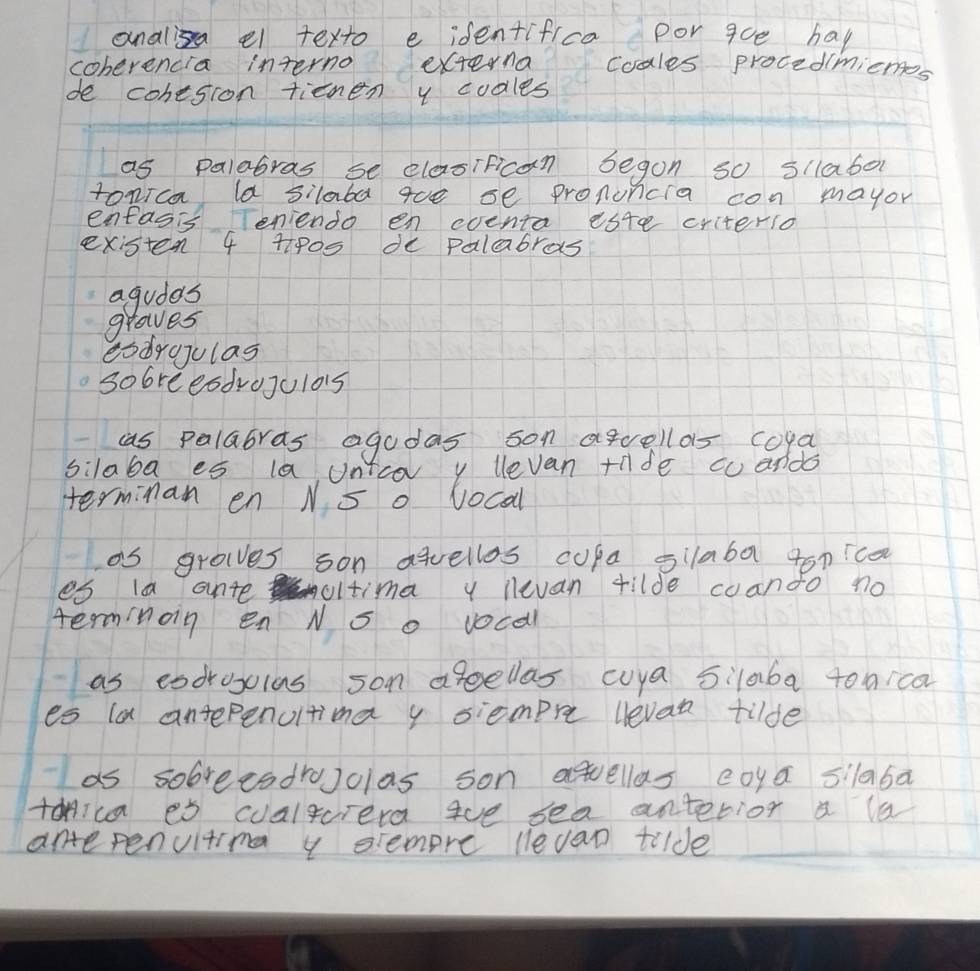 1 analisa el texto e identifica por que hay
coherencia interno externa cuales procedimientos
de cohesion tienen y cuales
Las palabras se clasifican segun su silaba
tonica, la silaba que se pronuncia con mayor
enfasis Teniendo en cuenta este criterio
existen 4 tipos de palabras:
• agudas
• graves
• esdrujulas
• sobreesdrujulas
- Las palabras agudas son aquellas cuya
silaba es la unica y llevan tilde cuando
terminan en N, S o vocal
- Las graves son aquellas cuya silaba tonica
es la ante ultima y llevan tilde cuando no
terminan en N, S o vocal
- Las esdrujulas son aquellas cuya silaba tonica
es la antepenultima y siempre llevan tilde
- Las sobreesdrujulas son aquellas cuya silaba
tónica es cualquiera que sea anterior a la
antepenultima y siempre llevan tilde